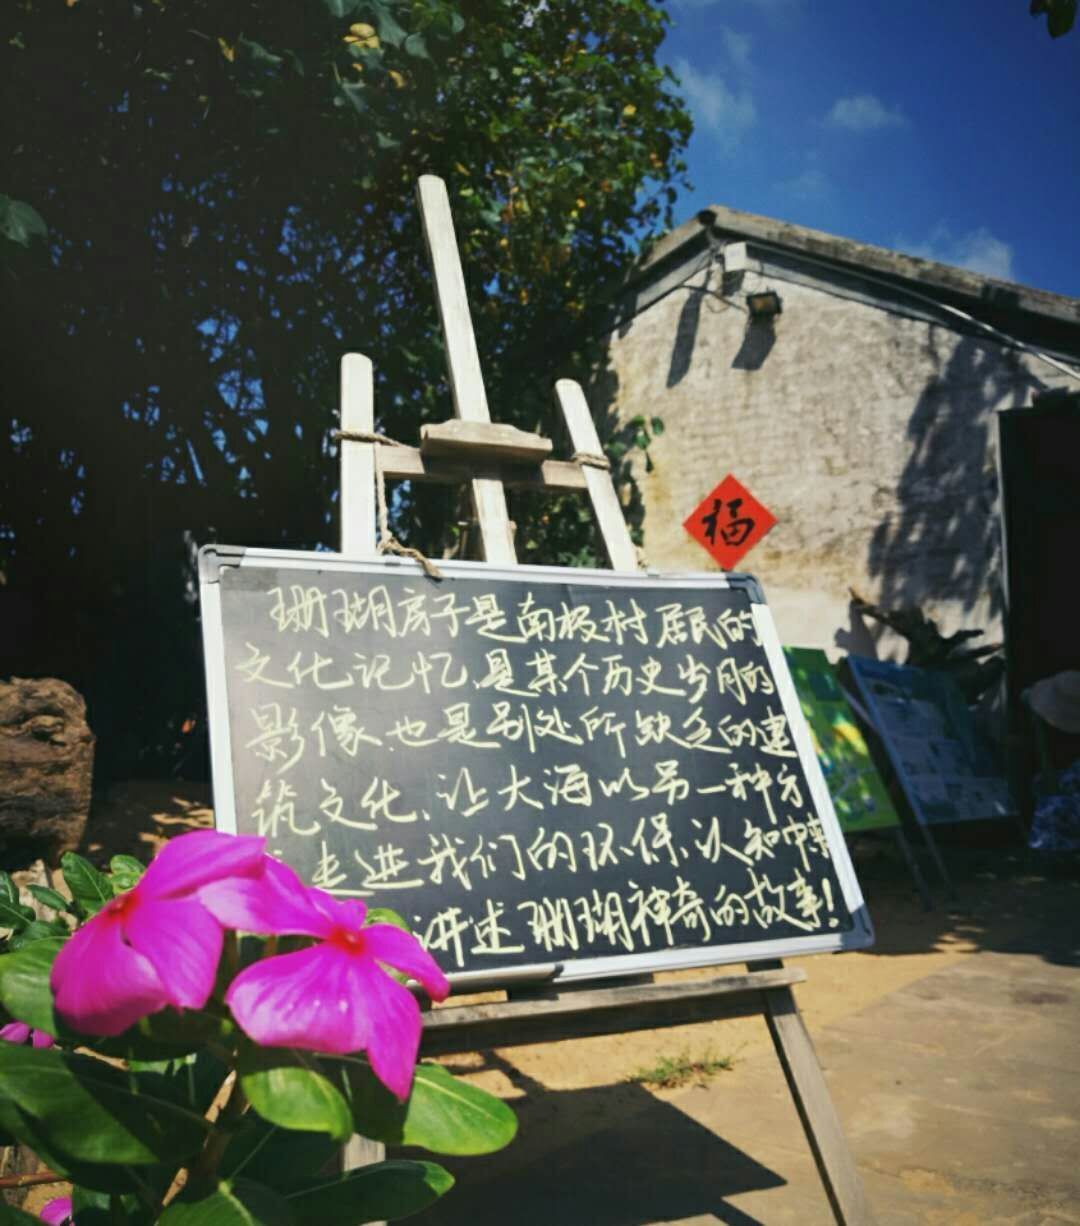 福
珊瑚房子是南极村居民的
文化记忆、是某个历史岁月的
影像、也是别处所缺乏的建
筑文化、让大海以另一种方
走进我们的环保、认知
讲述珊瑚神奇的故事!